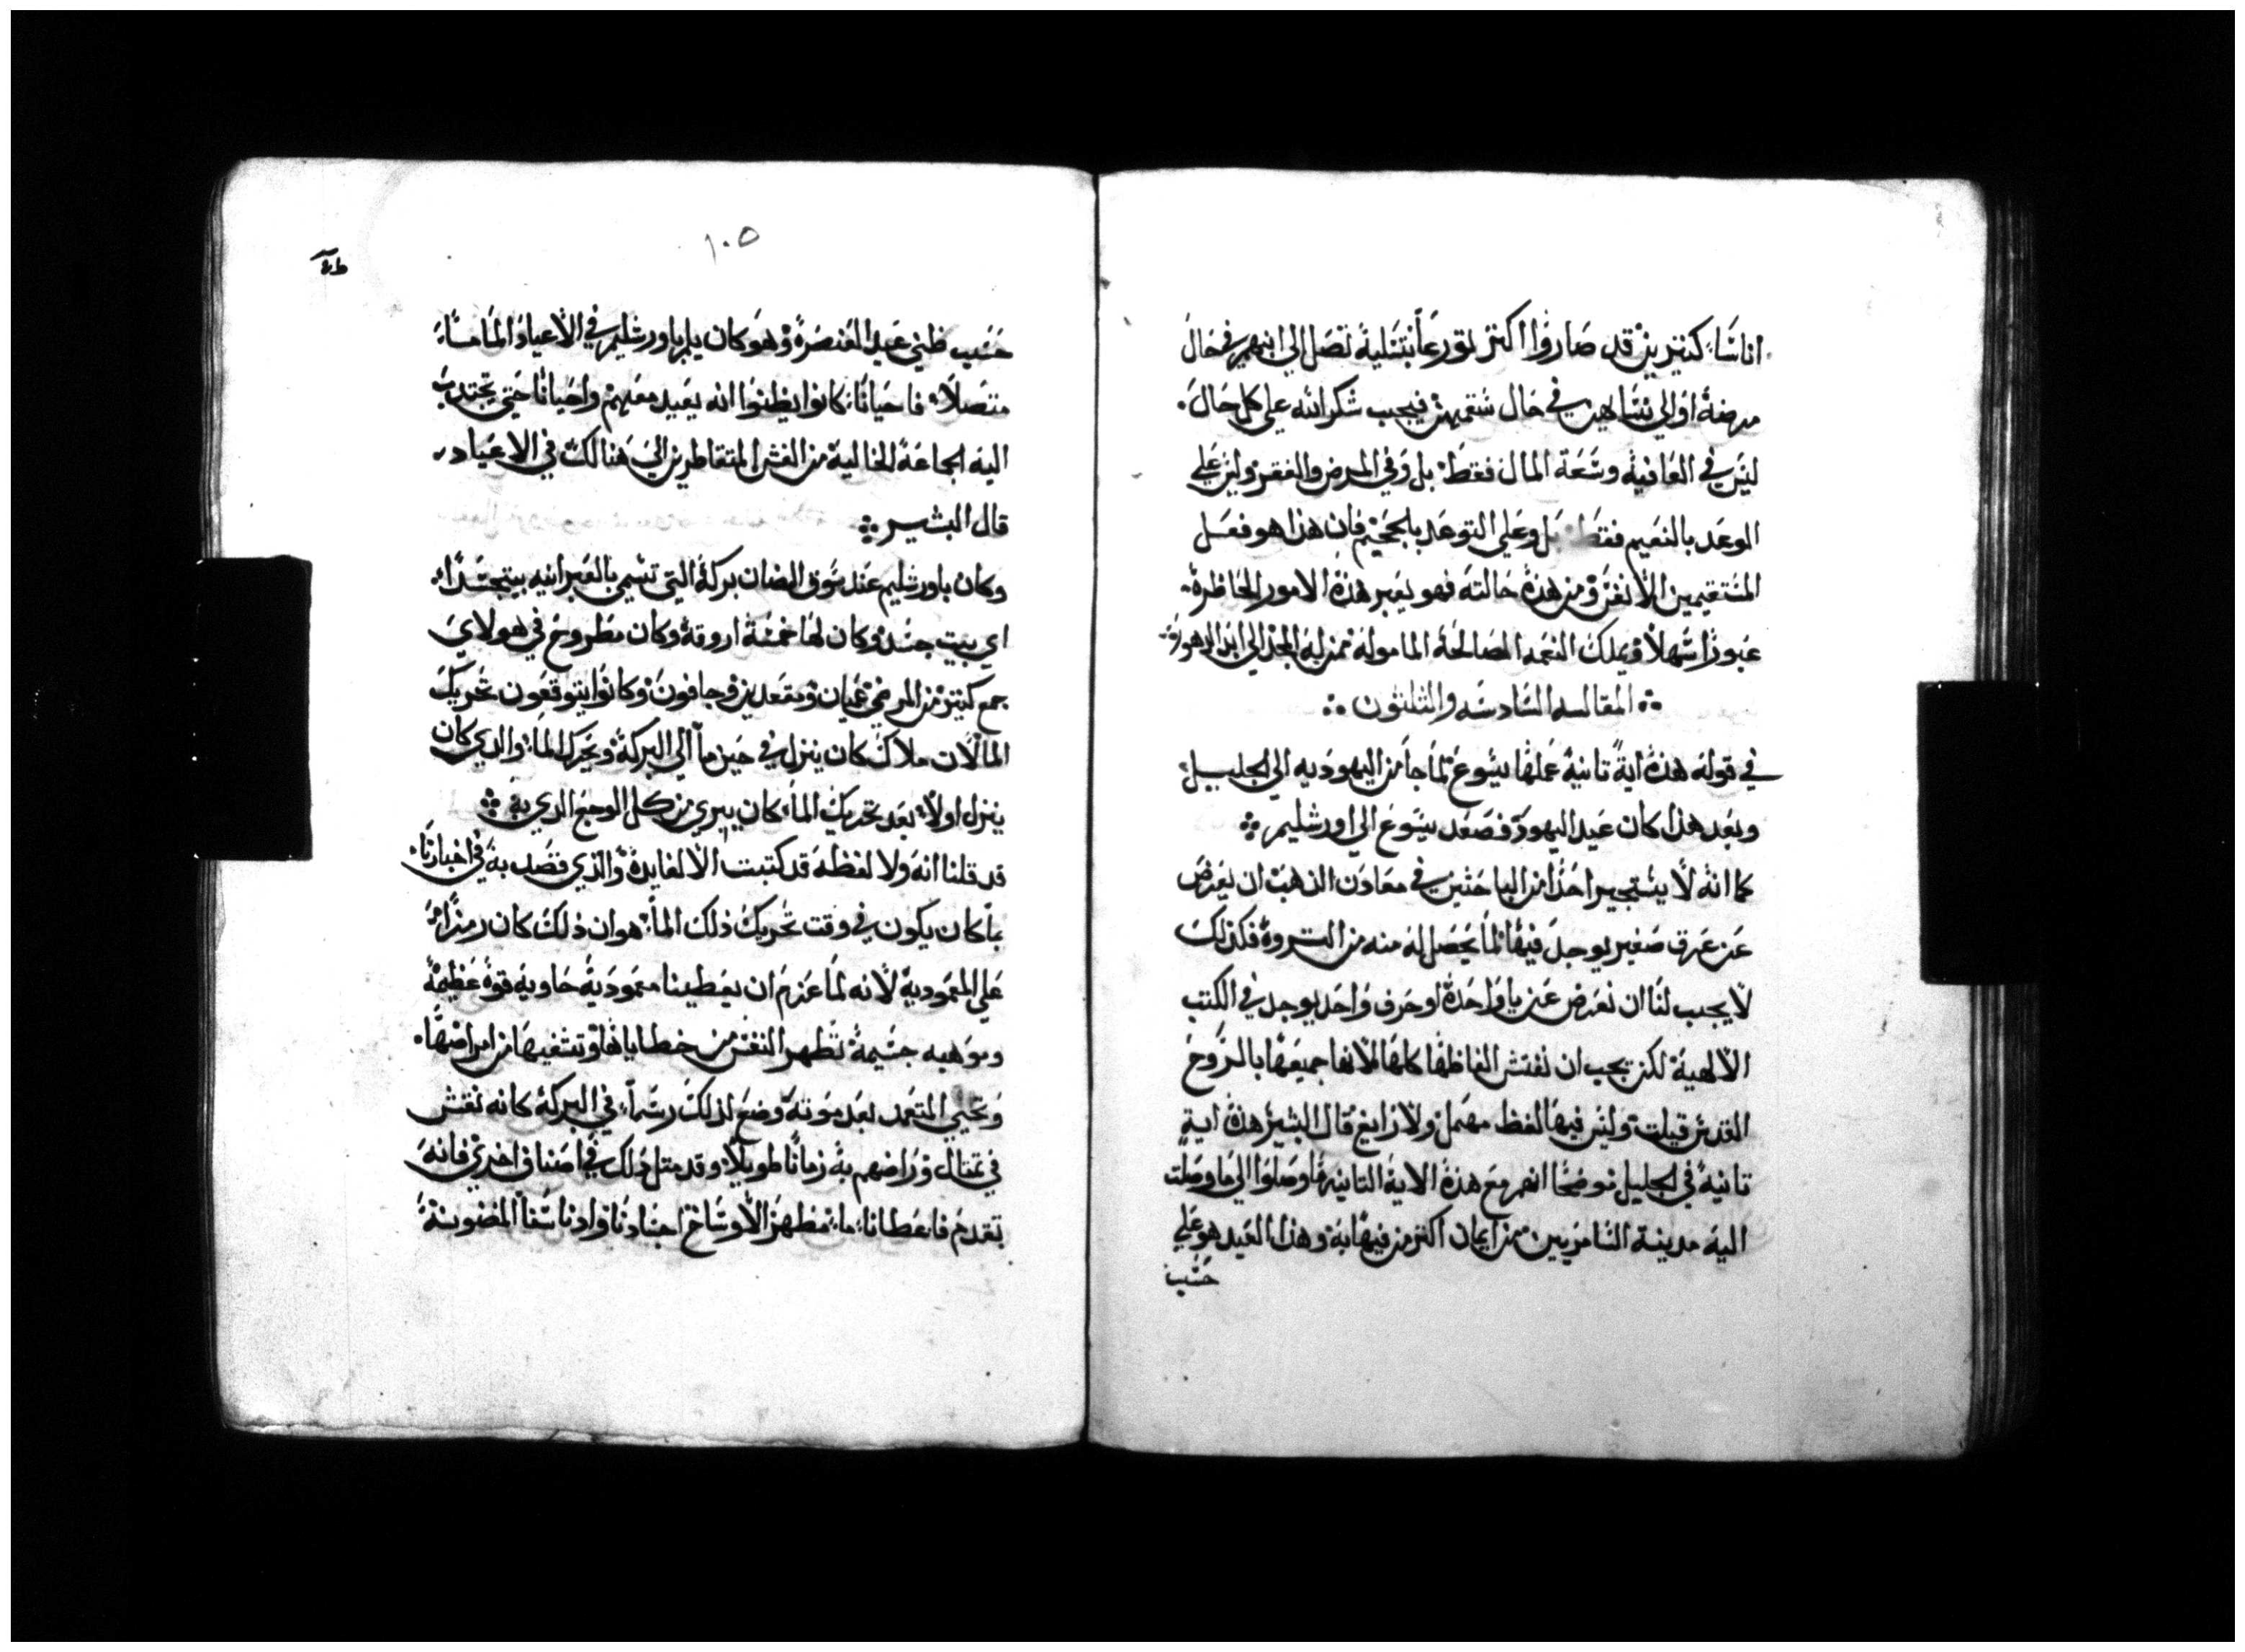 اناسًا كتيرين قد صاروا اكتر تورعًا بتسلية تصل الي ابنهم في حال
مرضة او الي نسايهن في حال شقمهن فيجب شكر الله علي كل حال
ليس في العافية وسَعَة المال فقط بل وفي المرض والفقر وليس علي
الوعد بالنعيم فقط بل وعلي التوعد بالجحيم فان هذا هو فعل
المستقيمين الانفس ومن هذة حالته فهو يعبر هذة الامور الخاطرة
عبورًا سهلاً ويملك النعمه الصالحة المامولة منزلية المجد الي ابد الدهور
المقالسه السادسه والثلثون
في قوله هذة اية تانية عملها يسوع لما جا من اليهوديه الي الجليل
وبعد هذا كان عيد اليهود فصعد يسوع الي اورشليم
كما انه لا يستجير احدًا من الباحثين في معادن الذهب ان يعرض
عن عرق صغير يوجد فيها لما يحصل له منه من التروة فكذلك
لا يجب لنا ان نعرض عن يا واحدة او حرف واحد يوجد في الكتب
الالهية لكن يجب ان نفتش الفاظها كلها لانها جميعها بالروح
القدس قيلت وليس فيها لفظ مهمل ولا زايغ قال البشير هذة اية
تانية في الجليل موضحًا انهم مع هذة الاية التانية ما وصلوا الي ما وصلت
اليه مدينة السامريين ممن ايمان اكتر من فيها به وهذا العيد هو علي
حسب
١٠٥
حسب ظني عيد العنصرة وهو كان يلم باورشليم في الاعياد الماما
متصلاً فاحيانًا كانوا يظنوا انه يعيد معهم واحيانًا حتي تجتدب
اليه الجماعة الخالية من الغش المتقاطرين الي هنالك في الاعياد
قال البشير
وكان باورشليم عند سوق الضان بركة التي تسمي بالعبرانيه بيتجسدا
اي بيت جسد وكان لها خمسة اروقة وكان مطروح في هولاي
جمع كتير من المرضي عميان ومقعدين وجافون وكانوا يتوقعون تحريك
الما لان ملاك كان ينزل في حين ما الي البركة ويحرك الما والدي كان
ينزل اولاً بعد تحريك الما كان يبري من كل الوجع الدي به
قد قلنا انه ولا لفظه قد كتبت الا لفايدة والذي قصد به في اخبارنا
بما كان يكون في وقت تحريك ذلك الما هو ان ذلك كان رمزًا
علي المعمودية لانه لما عزم ان يعطينا معمودية حاوية قوة عظيمة
وموهبه جسيمة تطهر النفس من خطاياها وتشفيها من امراضها
وتحيي المتعمد بعد موته وضع لذلك رسماً في البركة كانه نقش
في تمتال وراضهم به زمانًا طويلاً وقد متل ذلك في اصناف اخري فانه
تقدم فاعطانا ما مطهر الاوساخ اجسادنا وادناسنا المضنونة